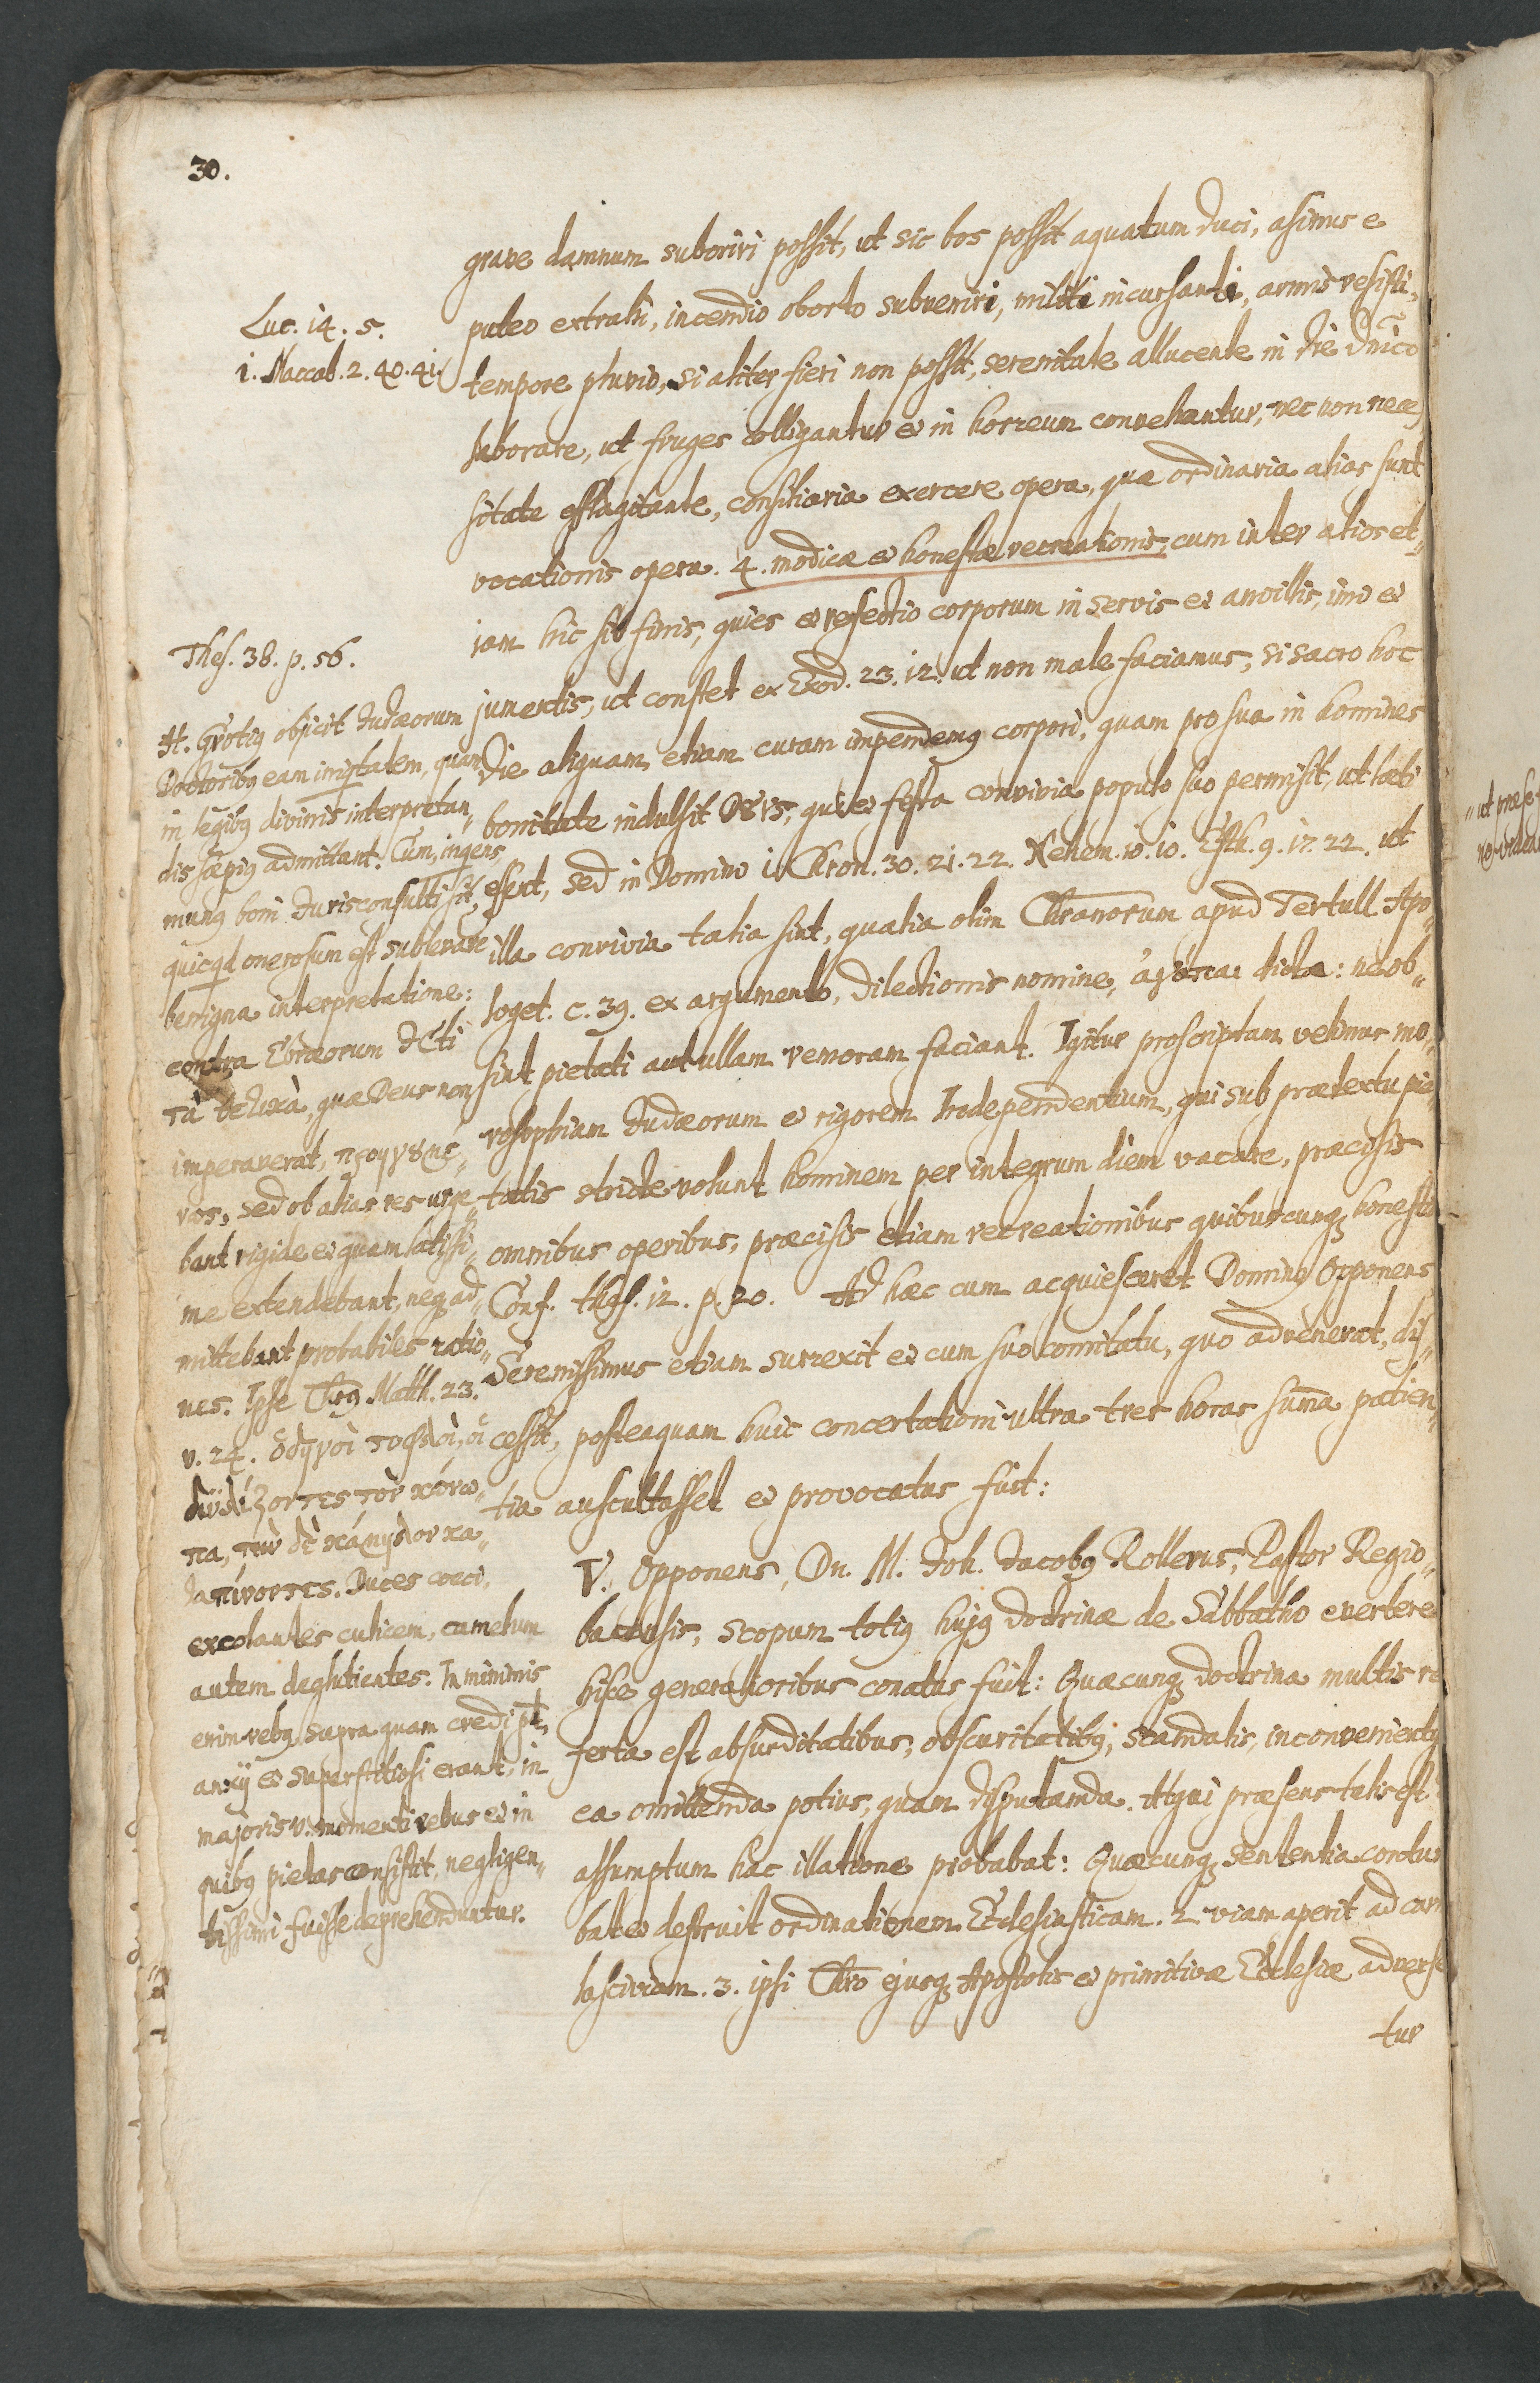 30.
grave damnum suboriri possit, ut sic bos possit aquatum duci, asinus e
puteo extrahi, incendio oborto subveniri, militi incursanti, armis resisti,
tempore pluvio, si aliter fieri non possit, serenitate allucente in die Dnico
laborare, ut fruges colligantur et in horreum convehantur, nec non neces
sitate efflagitante, consiliaria exercere opera, quæ ordinaria alias sunt
vocationis opera. 4. modicæ et honestæ recreationis, cum inter alios et„
iam hic sit finis, quies et refectio corporum in servis et ancillis, imò et
jumentis, ut constet ex Exod. 23. 12. ut non male faciamus, si sacro hoc
die aliquam etiam curam impendemq corpori, quam pro sua in homines
bonitate indulsit DEUS, qui et festa convivia populo suo permisit, ut læti
essent, sed in Domino 1. Chron. 30. 21. 22. Nehem. 10. 10. Esth. 9. 17. 22. ut
illa convivia talia sint, qualia olim Chranorum apud Tertull. Apo„
loget. c. 39. ex argumento, dilectionis nomine, ἀγάπαι dicta: ne ob„
sint pietati aut ullam remoram faciant. Igitur proscriptam velimus mo„
rosophiam Judæorum et rigorem Independentium, qui sub prætextu pie„
tatis stricte volunt hominem per integrum diem vacare, præcisis
omnibus operibus, præcisis etiam recreationibus quibuscunq honestis
Conf. thes. 12. p. 20. Ad hæc cum acquiesceret Dominq Opponens
Serenissimus etiam surrexit et cum suo comitatu, quo advenerat, dis„
cessit, posteaquam huic concertationi ultra tres horas suma patien„
tia auscultasset et provocatus fuit:
V. Opponens, Dn. M. Joh. Jacobq Rollerus, Pastor Regio„
bacensis, scopum totiq hujq doctrinæ de Sabbatho evertere
hisce generalioribus conatus fuit: Quæcunq doctrina multis re
ferta est absurditatibus, obscuritatibq, scandalis, inconvenientq
ea omittenda potius, quam disputanda. Atqui præsens talis est
assumptum hac illatione probabat: Quæcunq sententia contur
bat et destruit ordinationem Ecclesiasticam. 2. viam aperit ad carn
lasciviam. 3. ipsi Chro ejusq Apostolis et primitivæ Ecclesiæ adverse
tur
Luc. 14. 5.
1. Maccab. 2. 40. 41.
Thes. 38. p. 56.
H. Grotiq objicit Judæorum
Doctoribq eam iniqtatem, quam
in legibq divinis interpretan„
dis sæpiq admittant. Cum, inqens,
munq boni Jurisconsulti sit,
quicqd onerosum est sublevare
benigna interpretatione:
contra Ebræorum JCti
imperaverat,
ros, sed ob alias res urge„
bant rigide et quam latissi„
me extendebant, neq ad„
mittebant probabiles ratio„
nes. Ipse Chrq Matth. 23.
v. 24. ὁδηγοὶ τυφλοὶ, οἱ
διϋλίζοντες τὸν κώνω„
πα, τὴν δὲ κάμηλον κα„
ταπίνοντες. Duces cœci,
excolantes culicem, camelum
autem deglutientes. In minimis
enim rebq supra quam credi pt,
anxij et superstitiosi erant, in
majoris v. momenti rebus et in
quibq pietas consistit, negligen„
tissimi fuisse deprehenduntur.